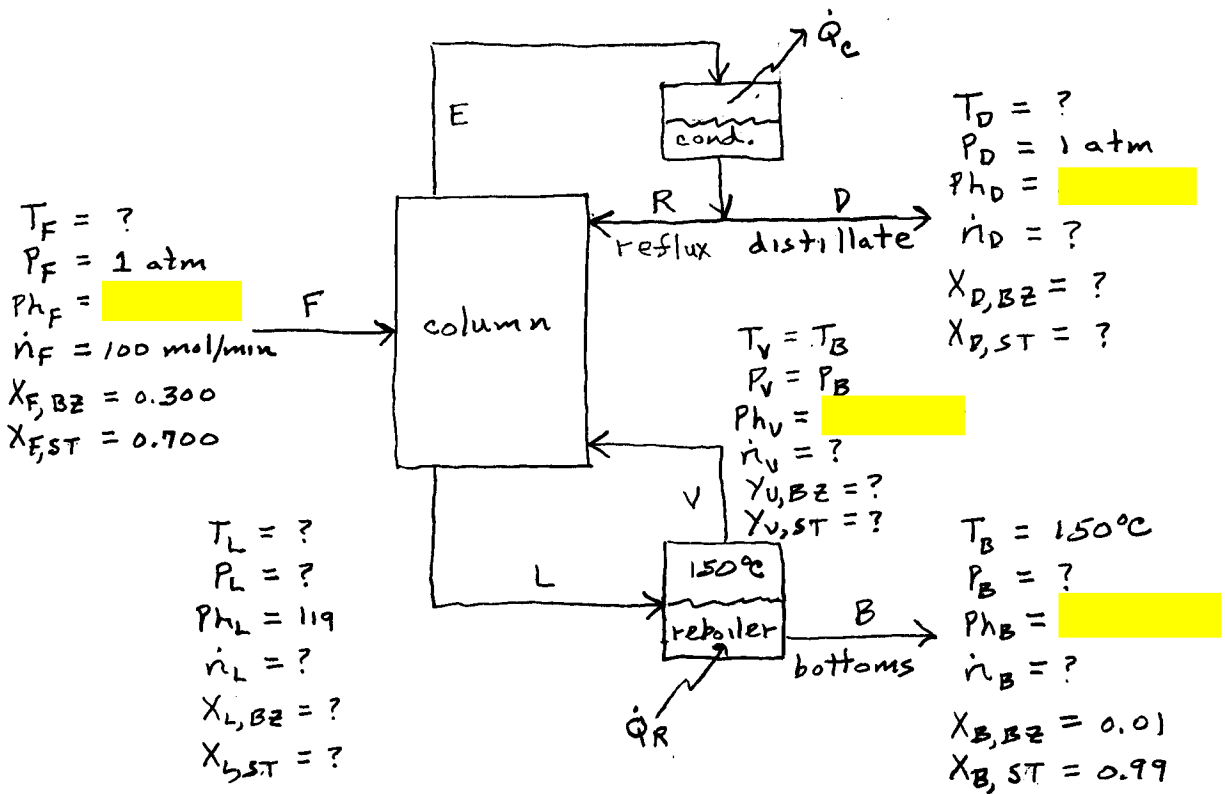 Q̇c
E
cond.
T_D = ?
P_D = 1 atm
Ph_D =
ṅ_D = ?
X_D,BZ = ?
X_D,ST = ?
R
reflux
D
distillate
T_F = ?
P_F = 1 atm
Ph_F =
ṅ_F = 100 mol/min
X_F,BZ = 0.300
X_F,ST = 0.700
F
column
T_V = T_B
P_V = P_B
Ph_V =
ṅ_V = ?
Y_V,BZ = ?
Y_V,ST = ?
V
T_L = ?
P_L = ?
Ph_L = liq
ṅ_L = ?
X_L,BZ = ?
X_L,ST = ?
L
150°C
reboiler
Q̇_R
B
bottoms
T_B = 150°C
P_B = ?
Ph_B =
ṅ_B = ?
X_B,BZ = 0.01
X_B,ST = 0.99